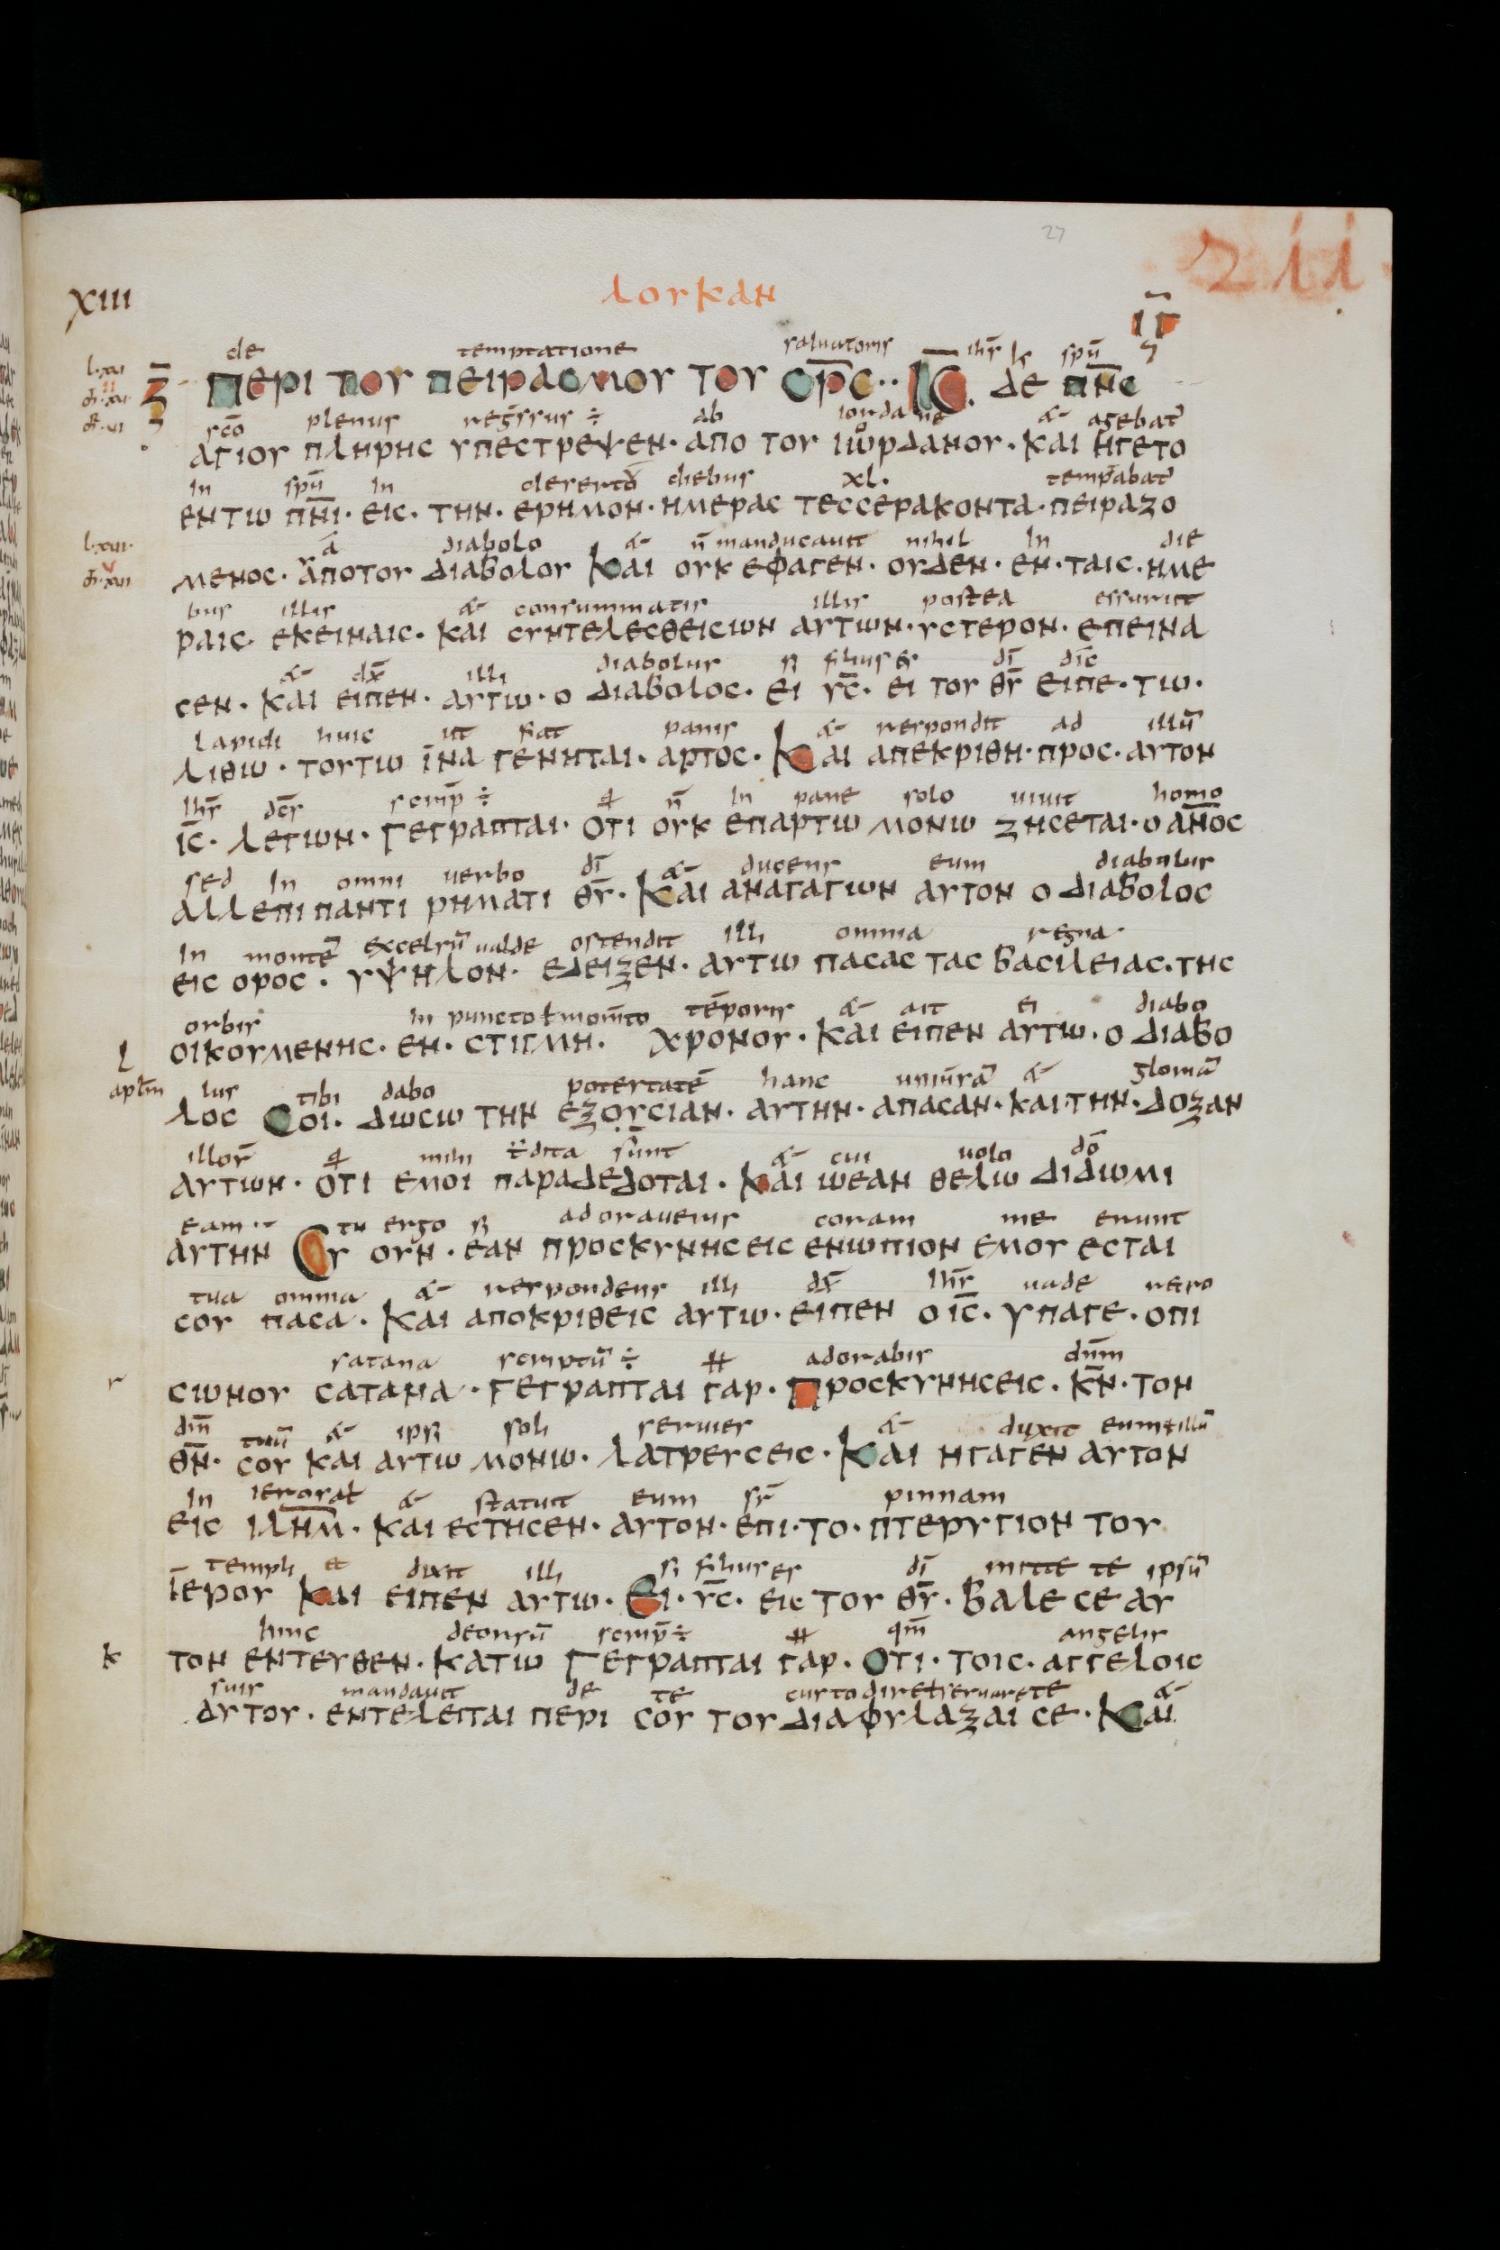 27
zii
XIII
λουκαν
ιγ̄
de temptatione saluatoris ihs̄ k spū
ζ̄ περι του πειρασμου του σρ̄ς·· ις̄. δε πν̄ς
sco plenus regrssus ÷ ab iordane & agebat
αγιου πληρης υπεστρεψεν· απο του ιωρδανου· και ηγετο
in spū in deserto diebus xl. temptabat
εντω πν̄ι· εις· την· ερημον· ημερας τεσσερακοντα· πειραζο
a diabolo & n̄ manducauit nihil in die
μενος· αποτου διαβολου και ουκ εφαγεν· ουδεν· εν· ταις· ημε
bus illis & consummatis illis postea essuriit
ραις· εκειναις· και συντελεσθεισων αυτων· υστερον· επεινα
& dx̄ illi diabolus si filius es dī dic
σεν· και ειπεν· αυτω· ο διαβολος· ει υς̄· ει του θῡ ειπε· τω·
lapidi huic ut fiat panis & respondit ad illū
λιθω· τουτω ινα γενηται· αρτος· και απεκριθη· προς· αυτον
ihs̄ dcs̄ scrip̄ ÷ n̄ in pane solo uiuit homo
ις̄· λεγων· γεγραπται· οτι ουκ επαρτω μονω ζησεται· ο ανο̄ς
sed in omni uerbo dī & ducens eum diabulus
αλλεπι παντι ρηματι θῡ· και αναγαγων αυτον ο διαβολος
in monte excelsū ualde ostendit illi omnia regna
εις ορος· υψηλον· εδειξεν· αυτω πασας τας βασιλειας· της
orbis in puncto ł mom̄to tēporis & ait ei diabo
οικουμενης· εν· στιγμη· χρονου· και ειπεν αυτω· ο διαβο
lus tibi dabo potestatē hanc uniūrsā & gloriā
λος σοι· δωσω την εξουσιαν· αυτην· απασαν· και· την· δοξαν
illor̄ mihi dita sunt & cui uolo dō
αυτων· οτι εμοι παραδεδοται· και ωεαν θελω διδωμι
eam·· tu ergo si adoraueris coram me erunt
αυτην Συ ουν· εαν προσκυνησεις ενωπιον εμου εσται
tua omnia & respondens illi dx̄ ihs̄ uade retro
σου πασα· και αποκριθεις αυτω· ειπεν ο ις̄· υπαγε· οπι
satana scriptū ÷ adorabis dnm̄
σωνου σατανα· γεγραπται γαρ· προσκυνησεις· κν̄· τον
dm̄ tuū & ipsi soli seruies & duxit eum ł illū
θν̄· σου και αυτω μονω· λατρευσεις· και ηγαγεν αυτον
in & statuit eum sr̄ pinnam
εις ιλημ̄· και εστησεν· αυτον· επι· το· πτερυγιον του
templi et dixit illi si filius es dī mitte te ipsū
ιερου και ειπεν αυτω· ει· υς̄· εις του θῡ· βαλε σε αυ
hinc deorsū scrip̄ ÷ qm̄ angelis
τον εντευθεν· κατω γεγραπται γαρ· οτι· τοις· αγγελοις
suis mandauit de te custodire ł seruare te &
αυτου· εντελειται περι σου του διαφυλαξαι σε· και